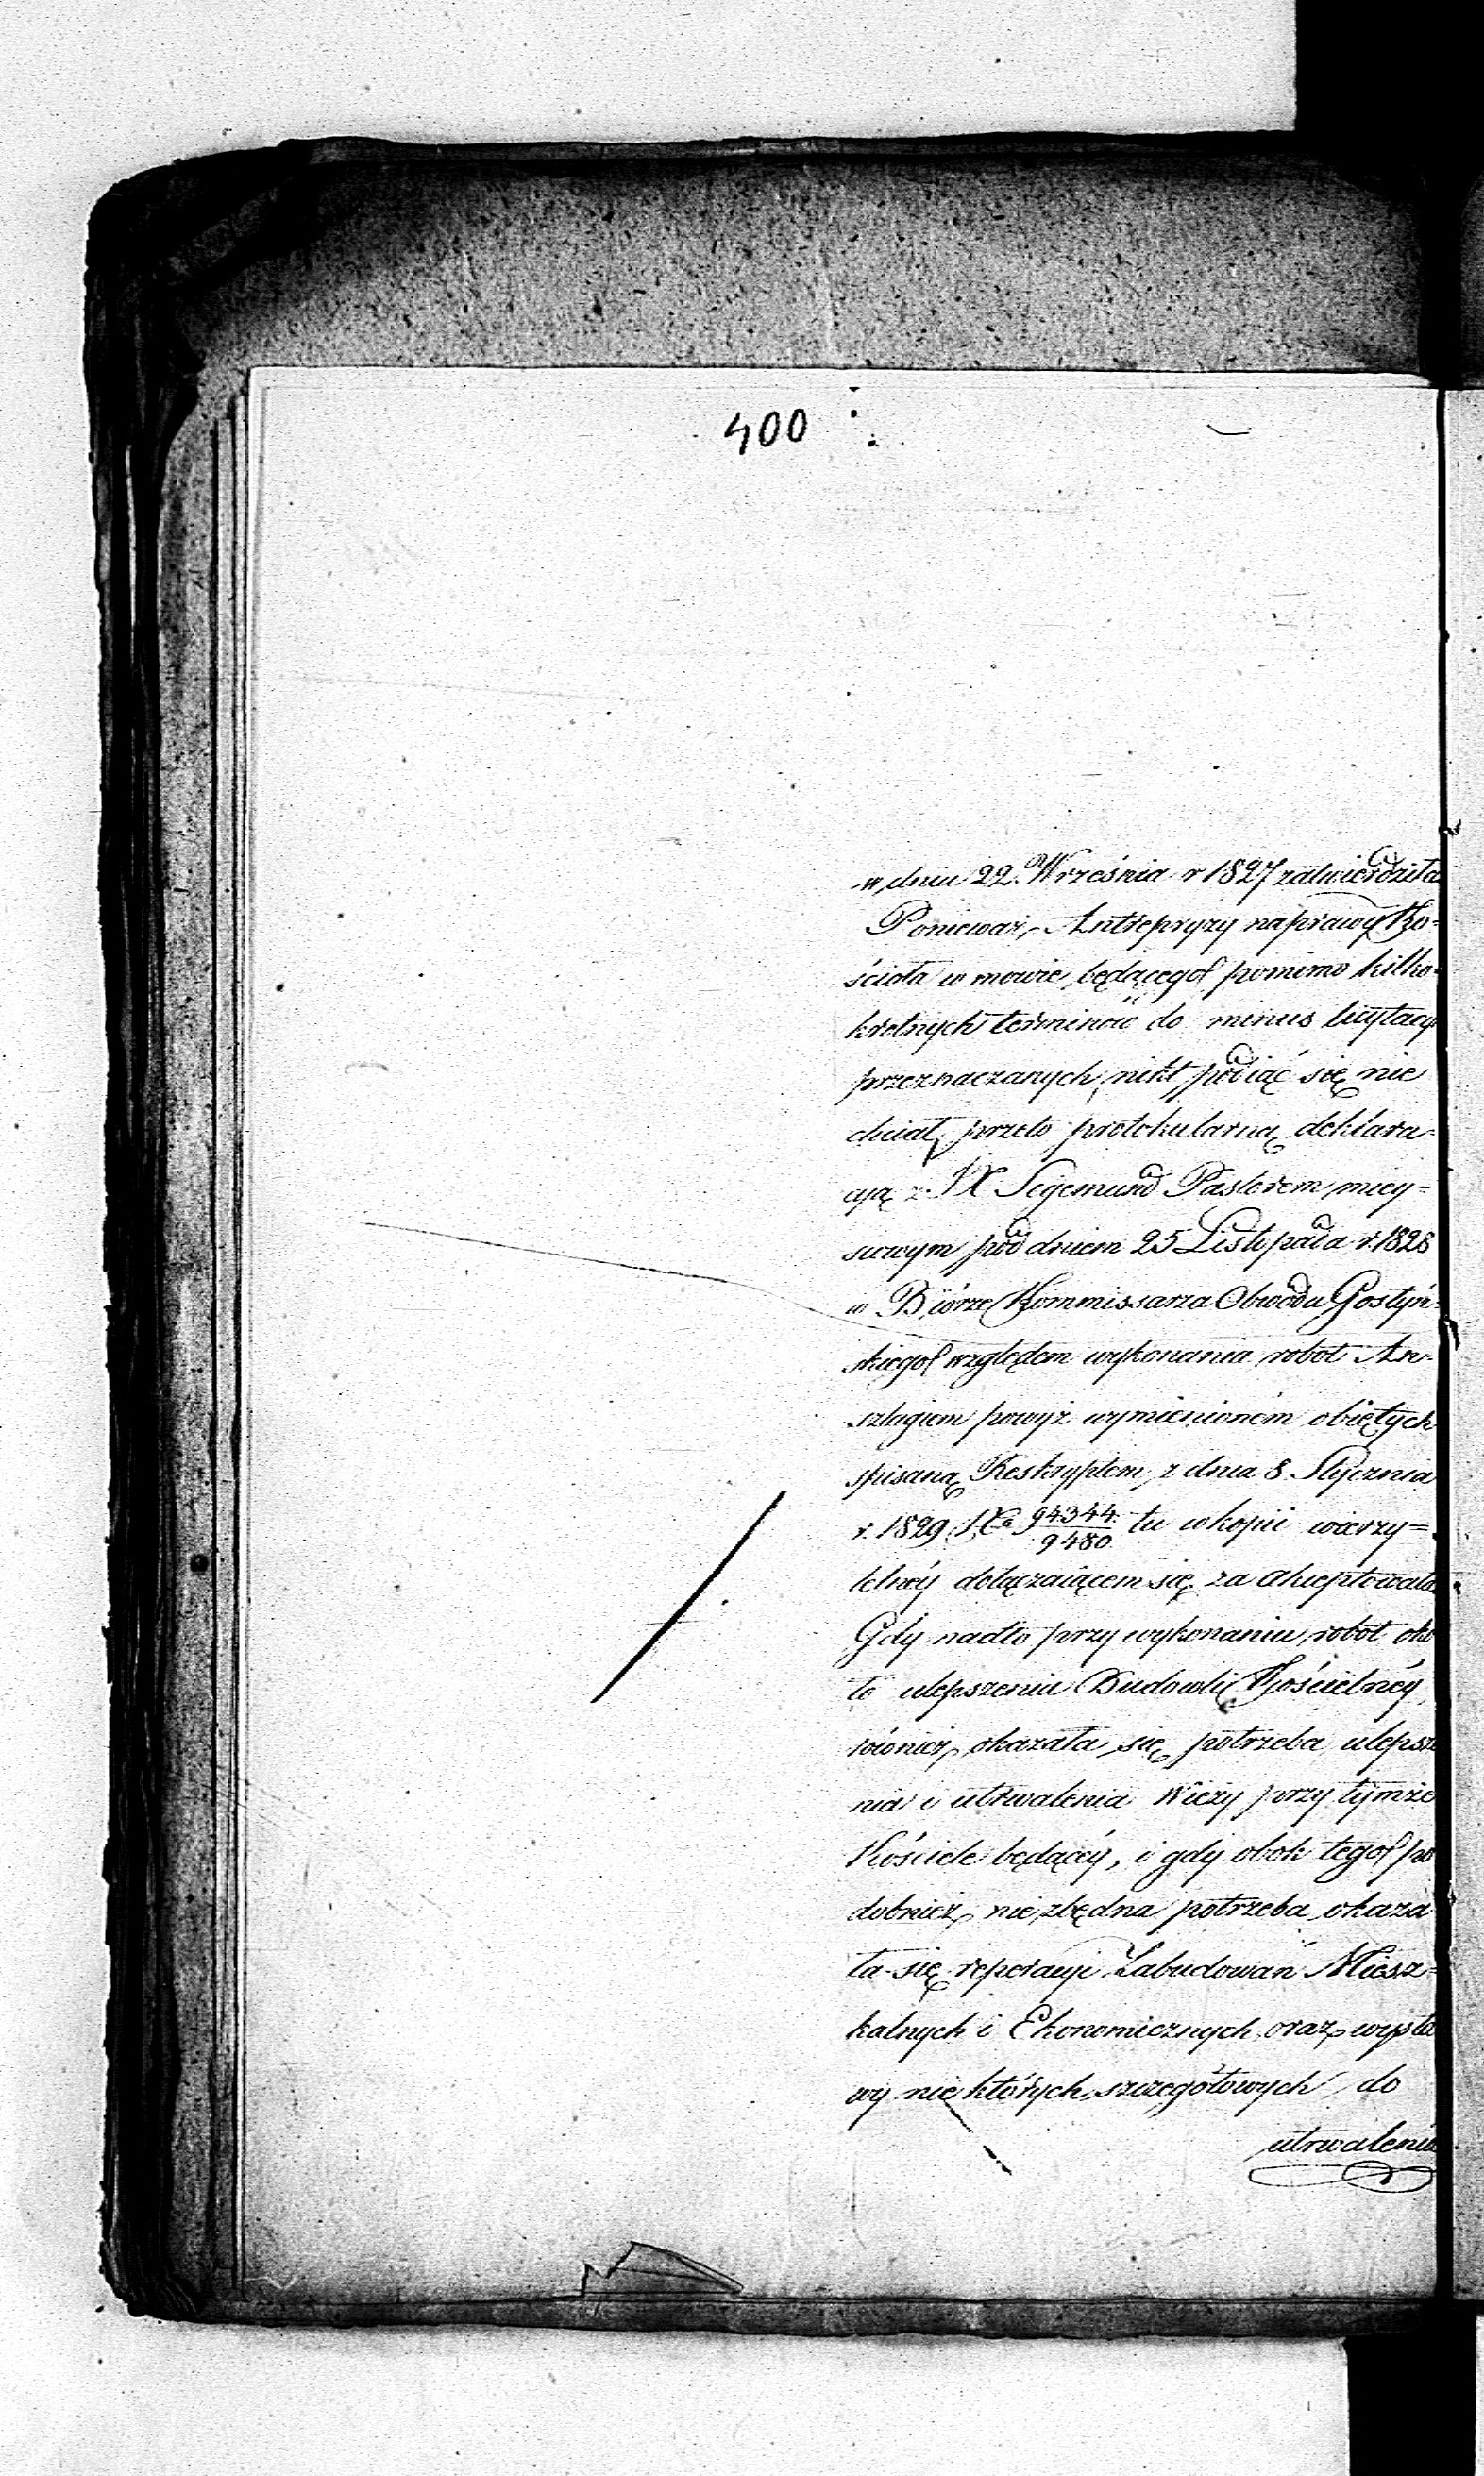 400
w dniu 22. Września r 1827 zatwierdziła
Ponieważ, Antrepryzy naprawy Ko-
ścioła w mowie będącego pomimo kilko-
krotnych terminów do minus licytacyi
przeznaczanych, nikt podiąć się nie
chciał, przeto protokularną deklara-
cyą z JX Sigemund Pastorem miey=
scowym pod dniem 25 Listopada r. 1828
w Biórze Kommissarza Obwodu Gostyń-
skiego względem wykonania robot An-
szlagiem powyż wymienionem obiętych
spisaną Reskryptem z dnia 8. Stycznia
r. 1829 94344/9480 tu w kopii wierzy=
telnéy dołączaiącem się za akceptowała
Gdy nadto przy wykonaniu robot oko
ło ulepszenia Budowli Kościelnéy
równiez okazała się potrzeba ulepsze
nia i utrwalenia Wieży przy tymże
Kościele będącéy, i gdy obok tego po
dobnież niezbędna potrzeba okaza
ła się reperacyi Zabudowań Miesz=
kalnych i Ekonomicznych oraz wysta
wy nie których szczegółowych do
utrwalenia